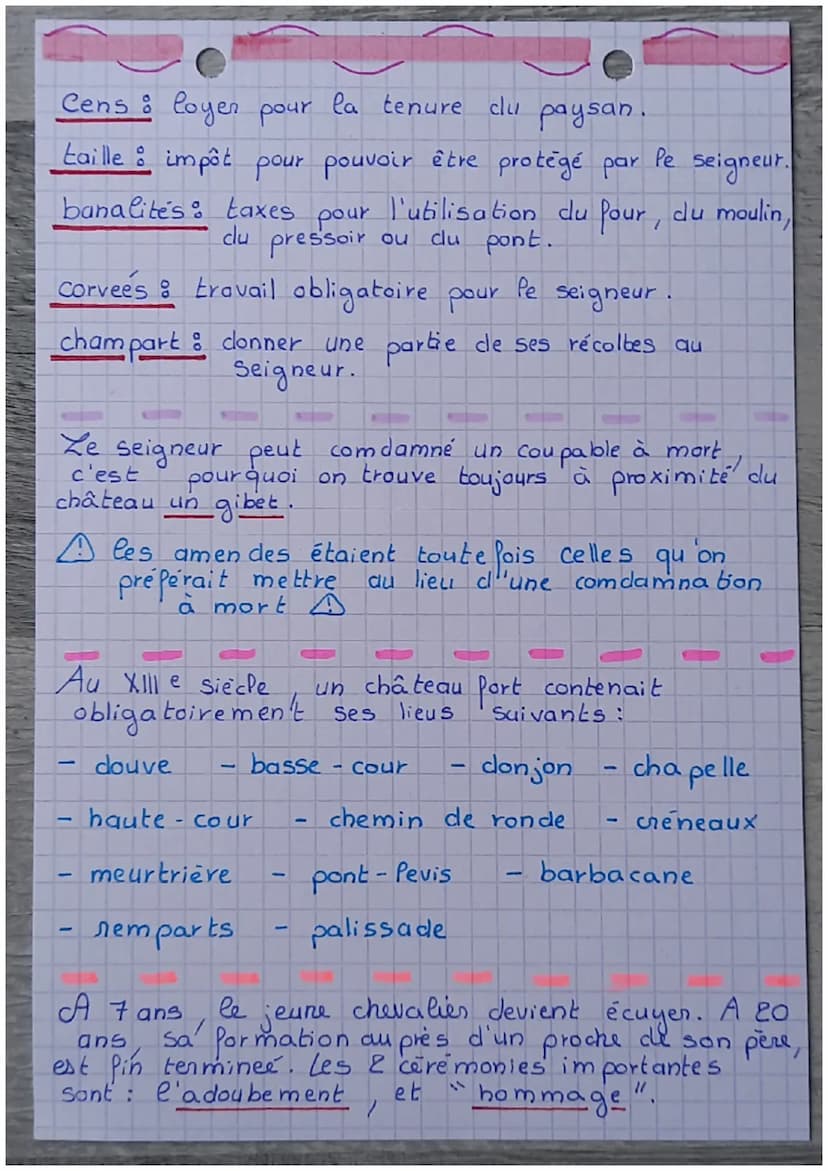 Cens : loyer pour la tenure du paysan.
taille : impôt pour pouvoir être protégé par le seigneur.
banalités : taxes pour l'utilisation du four, du moulin,
du pressoir ou du pont.
corveés : travail obligatoire pour le seigneur.
champart : donner une partie de ses récoltes au
seigneur.
Le seigneur peut comdamné un coupable à mort,
c'est pourquoi on trouve toujours à proximité du
château un gibet.
⚠ les amendes étaient toutefois celles qu'on
préférait mettre au lieu d'une comdamnation
à mort ⚠
Au XIIIe siècle, un château fort contenait
obligatoirement ses lieus suivants :
- douve - basse-cour - donjon - chapelle
- haute-cour - chemin de ronde - créneaux
- meurtrière - pont-levis - barbacane
- remparts - palissade
A 7 ans, le jeune chevalier devient écuyer. A 20
ans, sa formation auprès d'un proche de son père,
est fin termineé. Les 2 cérémonies importantes
sont : l'adoubement, et "hommage".